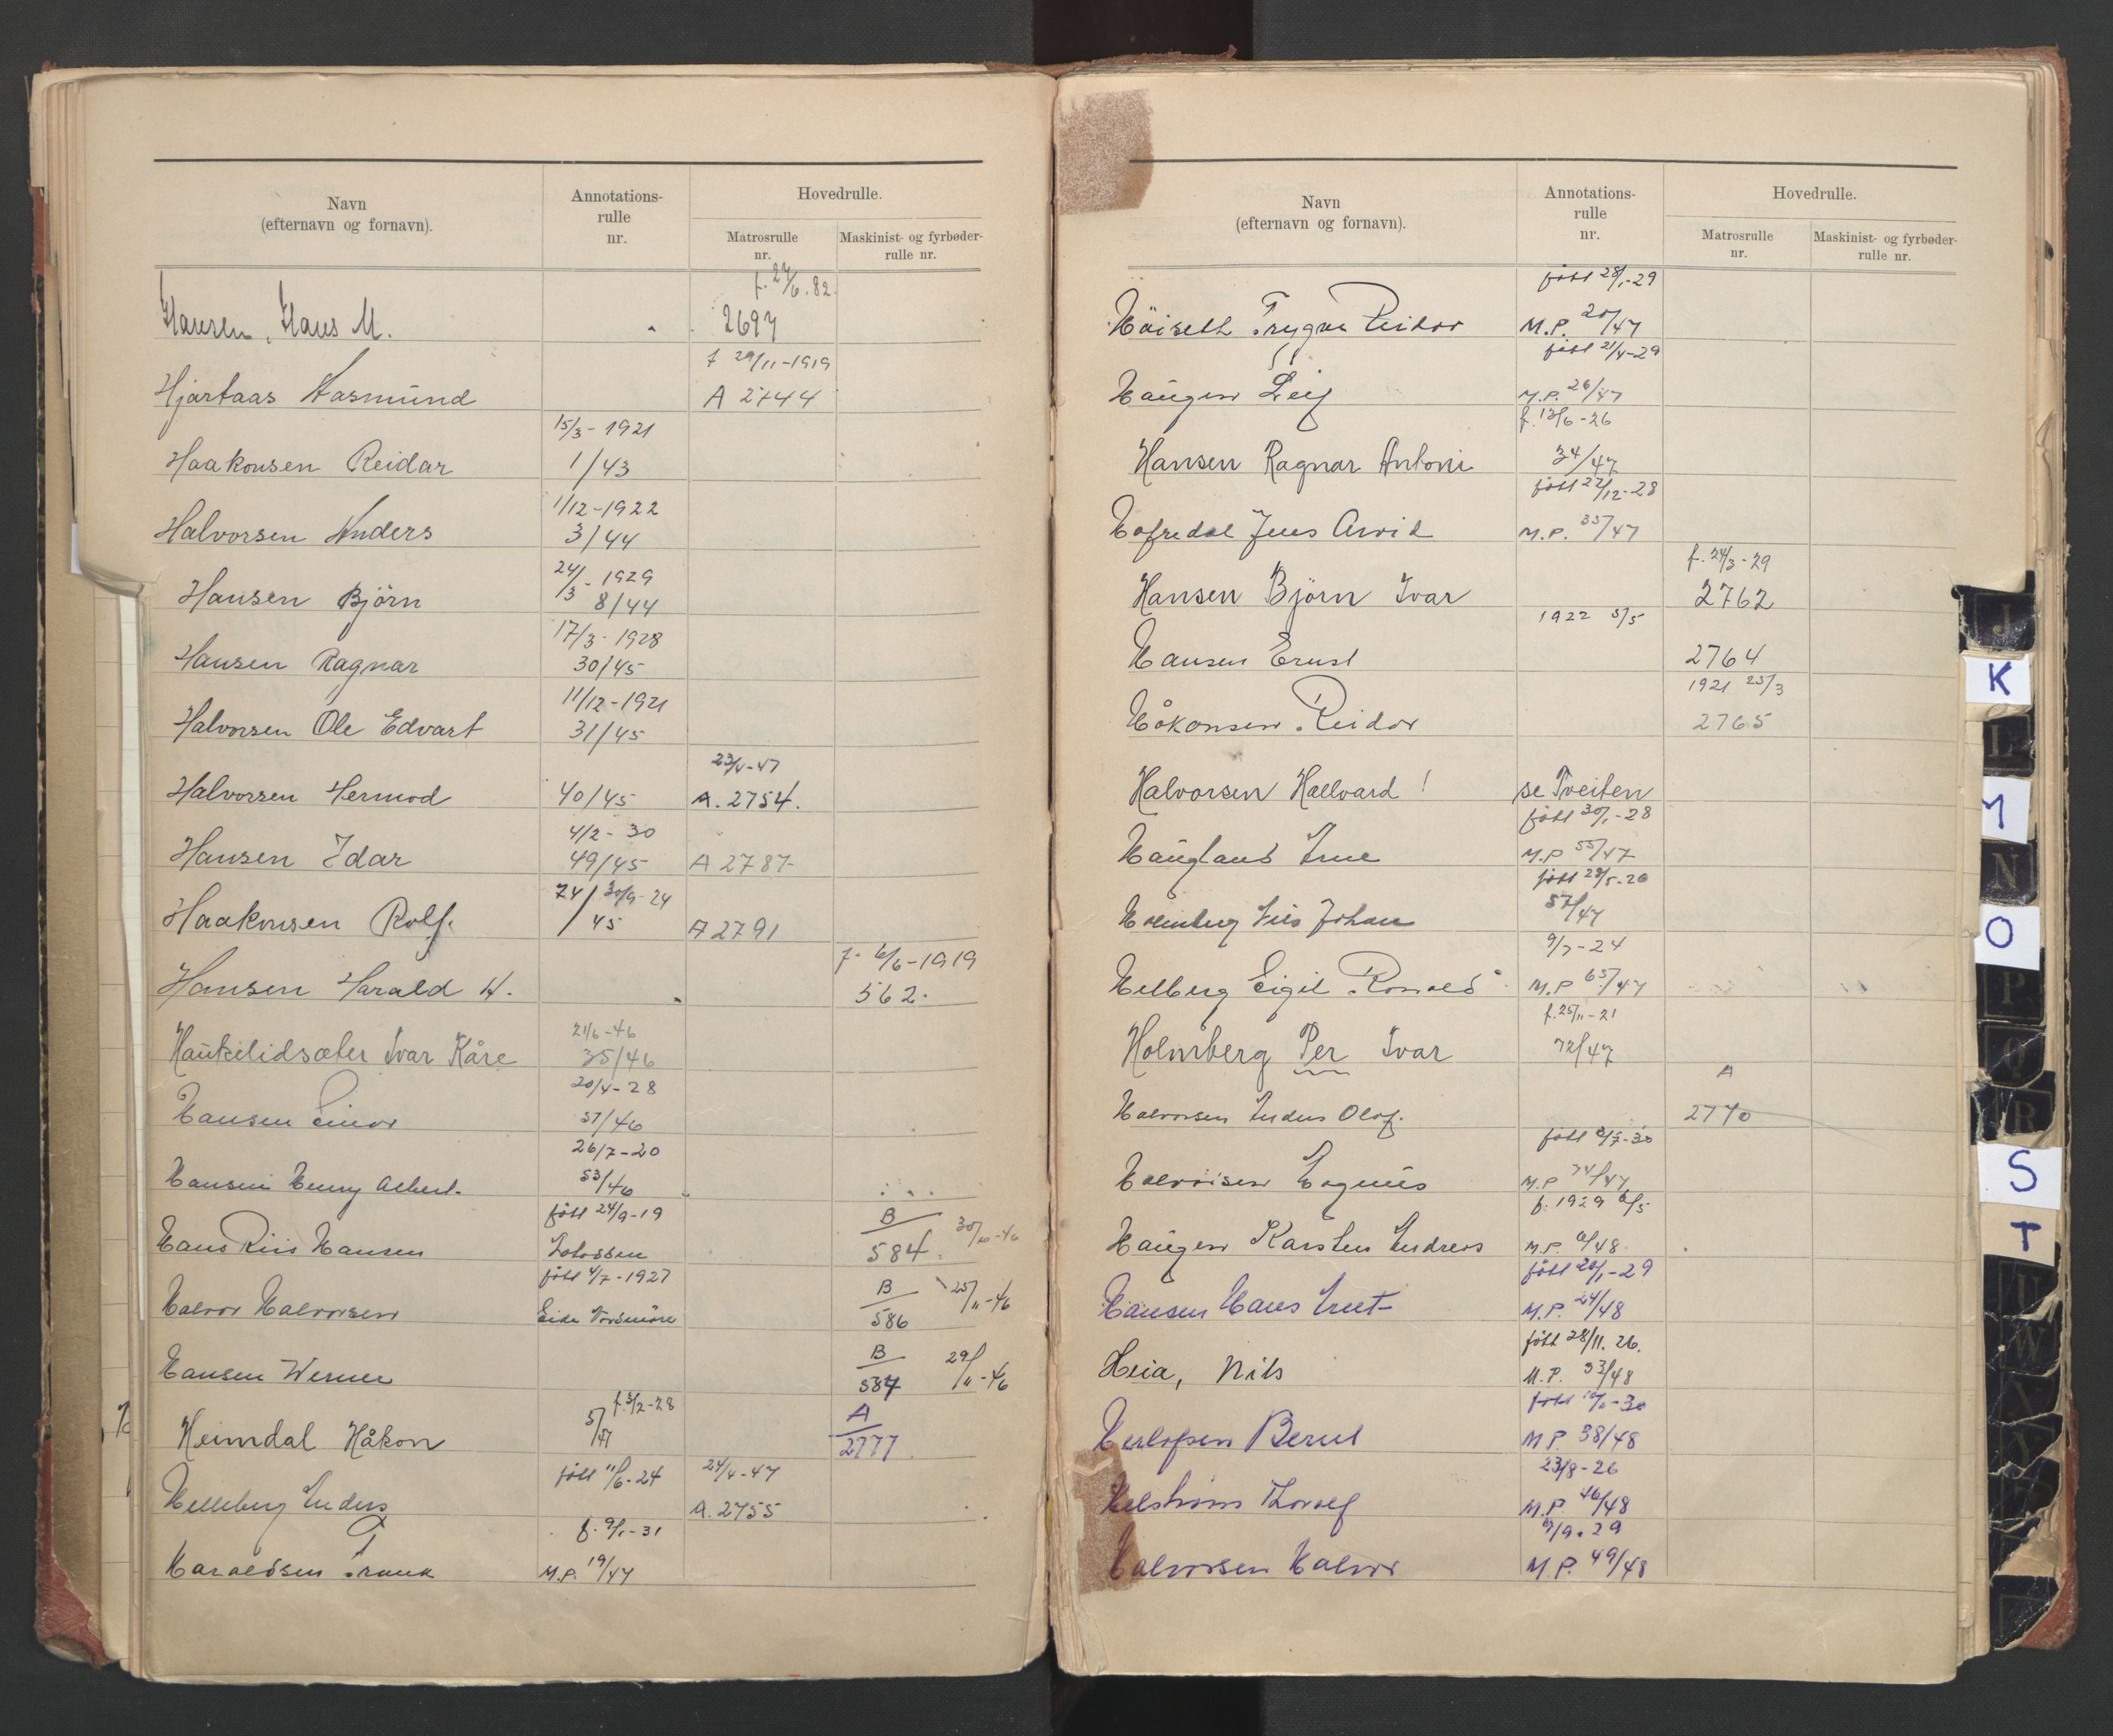 Navn
(efternavn og fornavn).
Annotations-
rulle
nr.
Hovedrulle.
Matrosrulle
nr.
Maskinist- og fyrbøder-
rulle nr.
f. 27/6. 82.
Hansen, Hans M. 2697
f 29/11-1919
Hjartaas Aasmund A 2744
15/3- 1921
Haakonsen Reidar 1/43
1/12-1922
Halvorsen Anders 3/44
24/3 - 1929
Hansen Björn 8/44
17/3- 1928
Hansen Ragnar 30/45
11/12-1921
Halvorsen Ole Edvart 31/45
23/4-47
Halvorsen Hermod 40/45 A. 2754.
4/2- 30
Hansen Idar 49/45 A 2787
30/9-24
Haakonsen Rolf. 74/45 A 2791
f. 6/6-1919
Hansen Harald H. 562.
21/6-46
Haukelidsæter Ivar Kåre 35/46
20/4-28
Hansen Einar 51/46
26/7-20
Hansen Henny Albert. 53/46
født 24/9-19
Hans Riis Hansen B 584. 30/10-46
født 4/7-1927
Halvor Halvorsen B 586 25/11-46
Hansen Werner B 587 29/11-46
f. 3/2-28
Heimdal Håkon 5/47 A 2777
født 11/6-24 24/4-47
Helleberg Anders A. 2755
f. 9/1-31
Haraldsen Frank M.P. 19/47
Navn
(efternavn og fornavn).
Annotations-
rulle
nr.
Hovedrulle.
Matrosrulle
nr.
Maskinist- og fyrbøder-
rulle nr.
født 28/1-29
Höiseth Trygve Reidar M.P. 20/47
født 21/4-29
Haugen Leif M.P. 26/47
f. 13/6-26
Hansen Ragnar Antoni 34/47
født 22/12-28
Hofredal Jens Arvid M.P. 35/47
f. 24/3-29
Hansen Björn Ivar 2762
1922 5/5
Hansen Ernst 2764
1921 25/3
Håkonsen Reidar 2765
Halvorsen Hallvard ! se Tveiten
født 30/1-28
Haugland Arne M.P 55/47
født 28/5-26
Holmberg Nils Johan 57/47
9/7-24
Helberg Eigil Ronald M.P 65/47
f. 25/11-21
Holmberg Per Ivar 72/47
A
Halvorsen Anders Olaf. 2770
Halvorsen Magnus M.P 74/47
f. 1929 6/5
Haugen Karsten Andreas M.P. 6/48
født 20/1-29
Hansen Hans Knut M.P. 24/48
født 28/11. 26.
Heia, Nils M.P. 33/48
Bernt M.P. 38/48
23/8-26
Helström Thorolf M.P. 46/48
9/9. 29
Halvorsen Halvor M.P. 49/48
J
K
L
M
N
O
P
Q
R
S
T
U
W
X